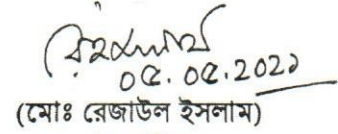 ০৫.০৫.২০২১
(মোঃ রেজাউল ইসলাম)